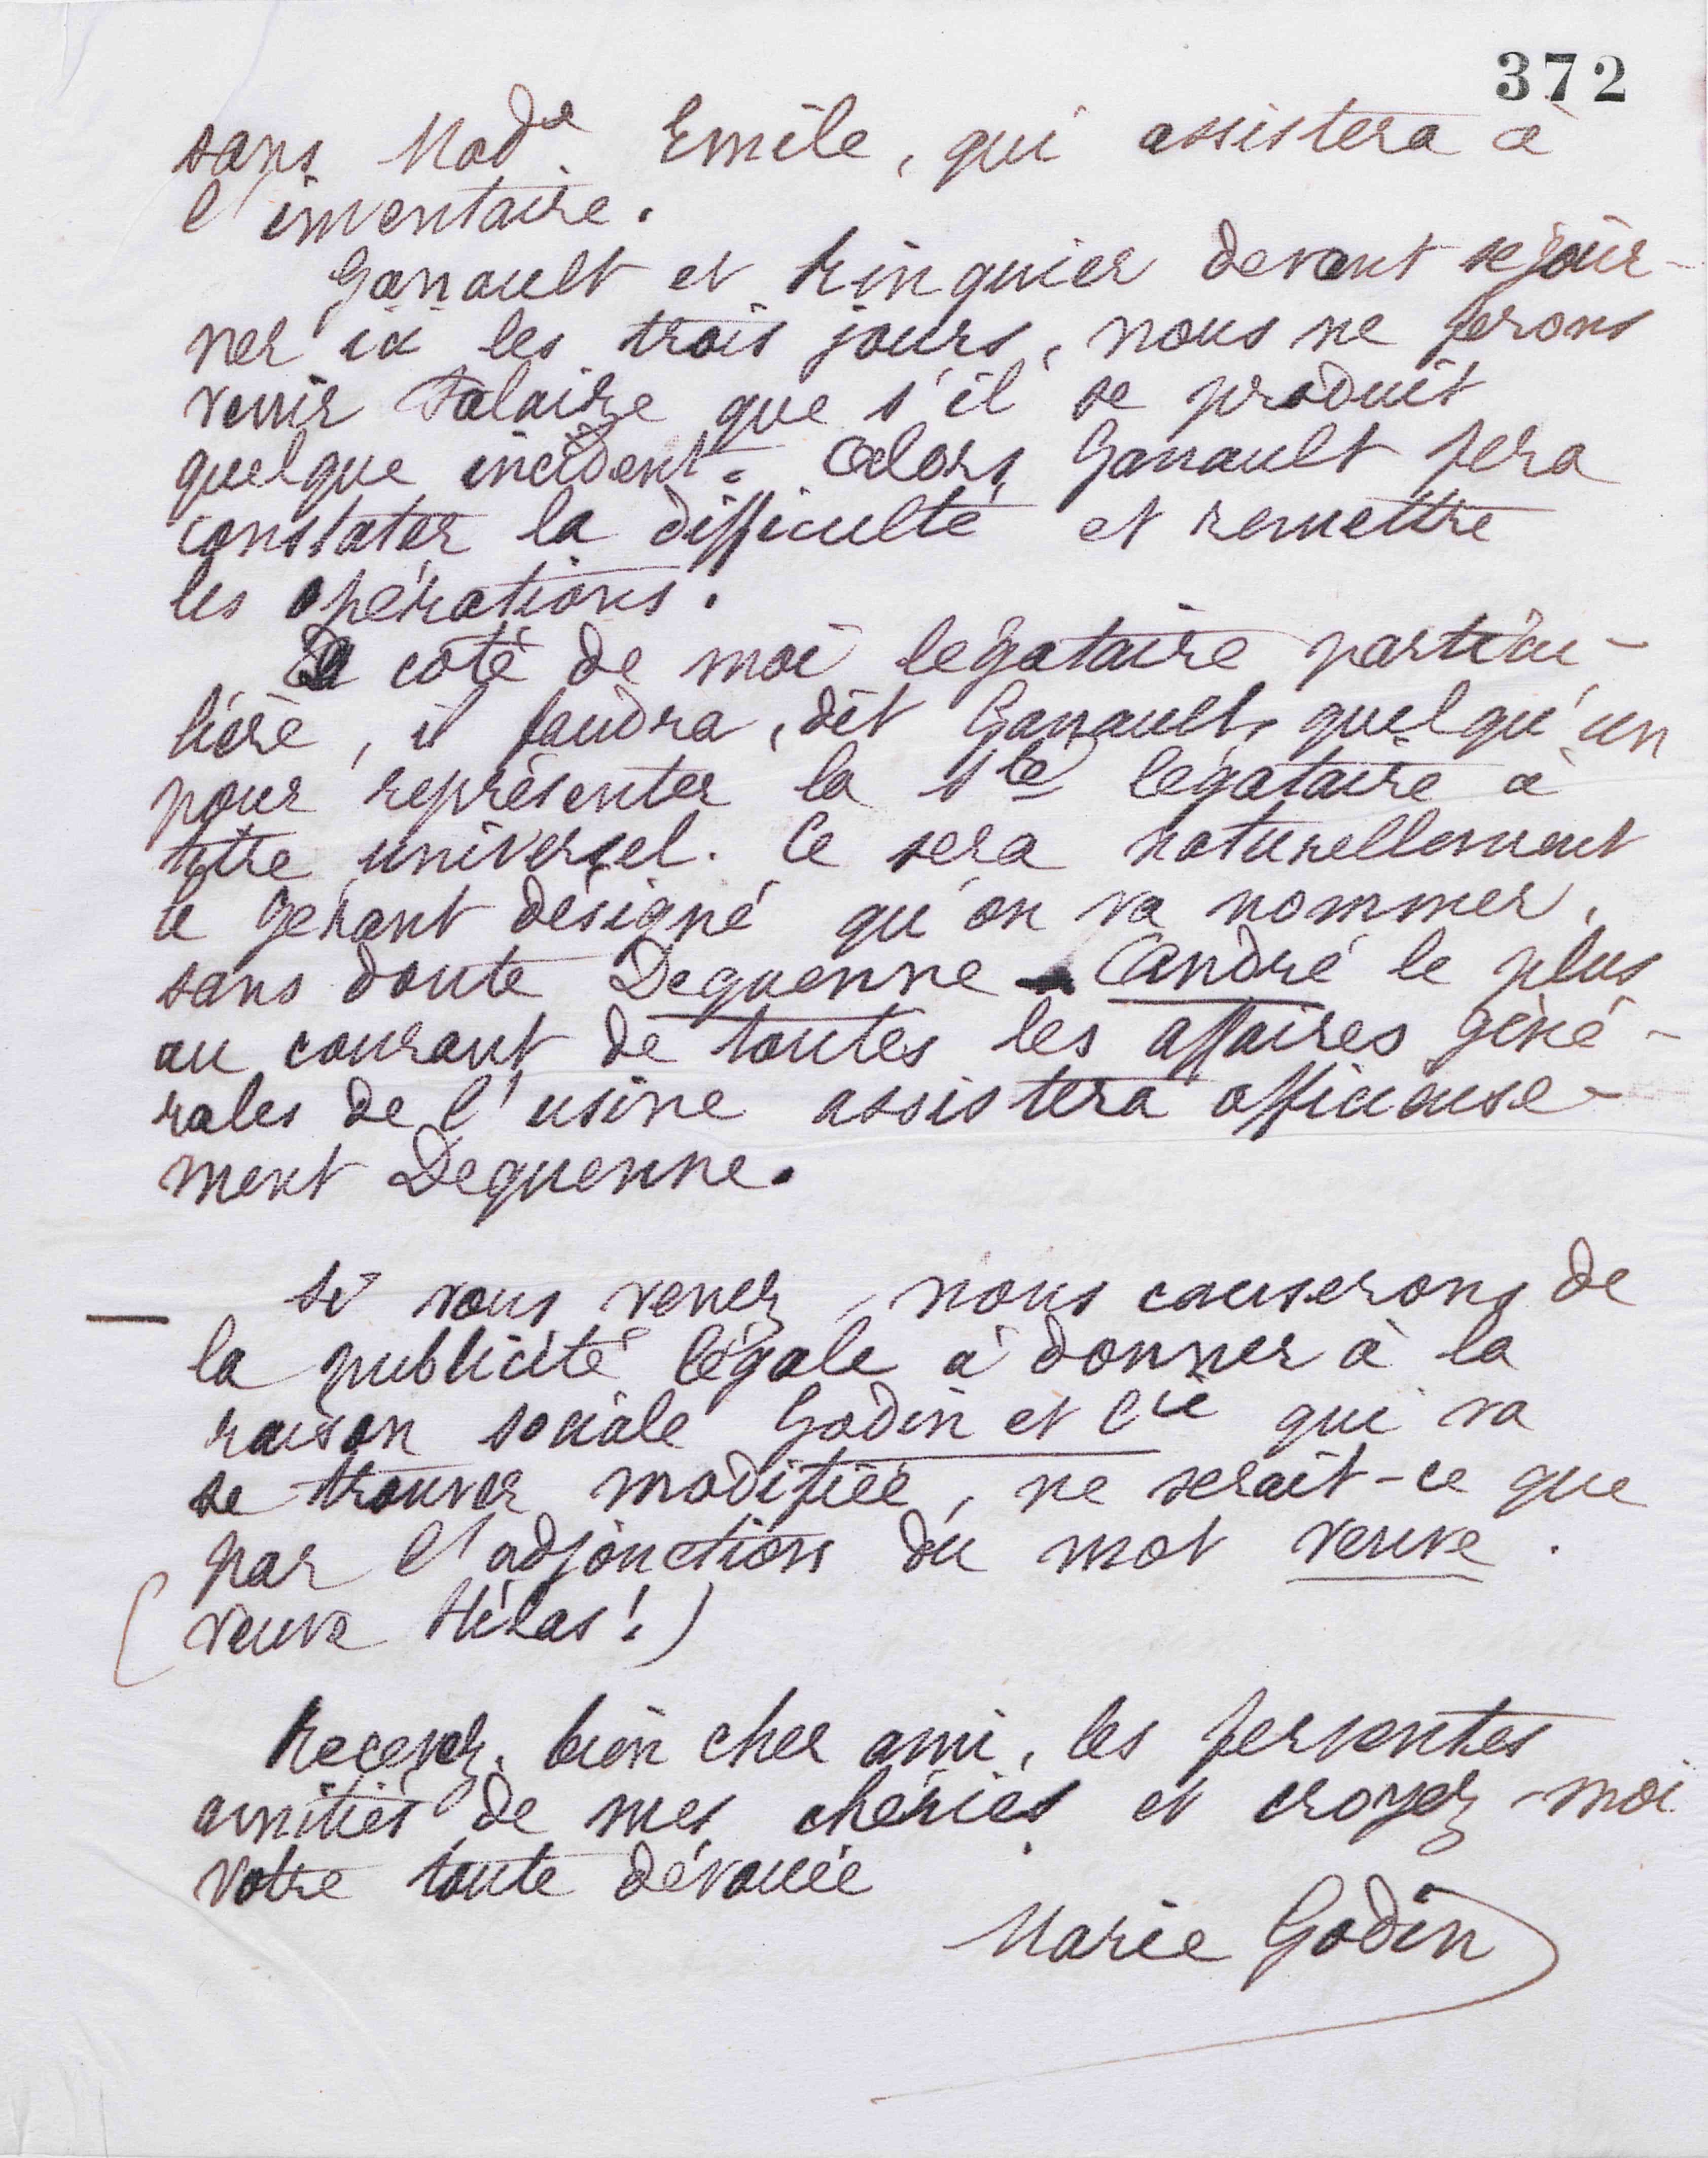 372
sans Mad.e Emile, qui assistera à
l'inventaire.
Ganault et Ringuier devant séjour-
ner ici les trois jours, nous ne ferons
venir Salaire que s'il se produit
quelque incident. Alors Ganault fera
constater la difficulté et remettre
les opérations.
A côté de moi légataire particu-
lière, il faudra, dit Ganault, quelqu'un
pour représenter la Sté légataire à
titre universel. Ce sera naturellement
le gérant désigné qu'on va nommer,
sans doute Dequenne. André le plus
au courant de toutes les affaires géné-
rales de l'usine assistera officieuse-
ment Dequenne.
— Si vous venez, nous causerons de
la publicité légale à donner à la
raison sociale Godin et Cie qui va
se trouver modifiée, ne serait-ce que
par l'adjonction du mot veuve.
(veuve Hélas!)
Recevez, bien cher ami, les ferventes
amitiés de mes chéries et croyez-moi
votre toute dévouée
Marie Godin